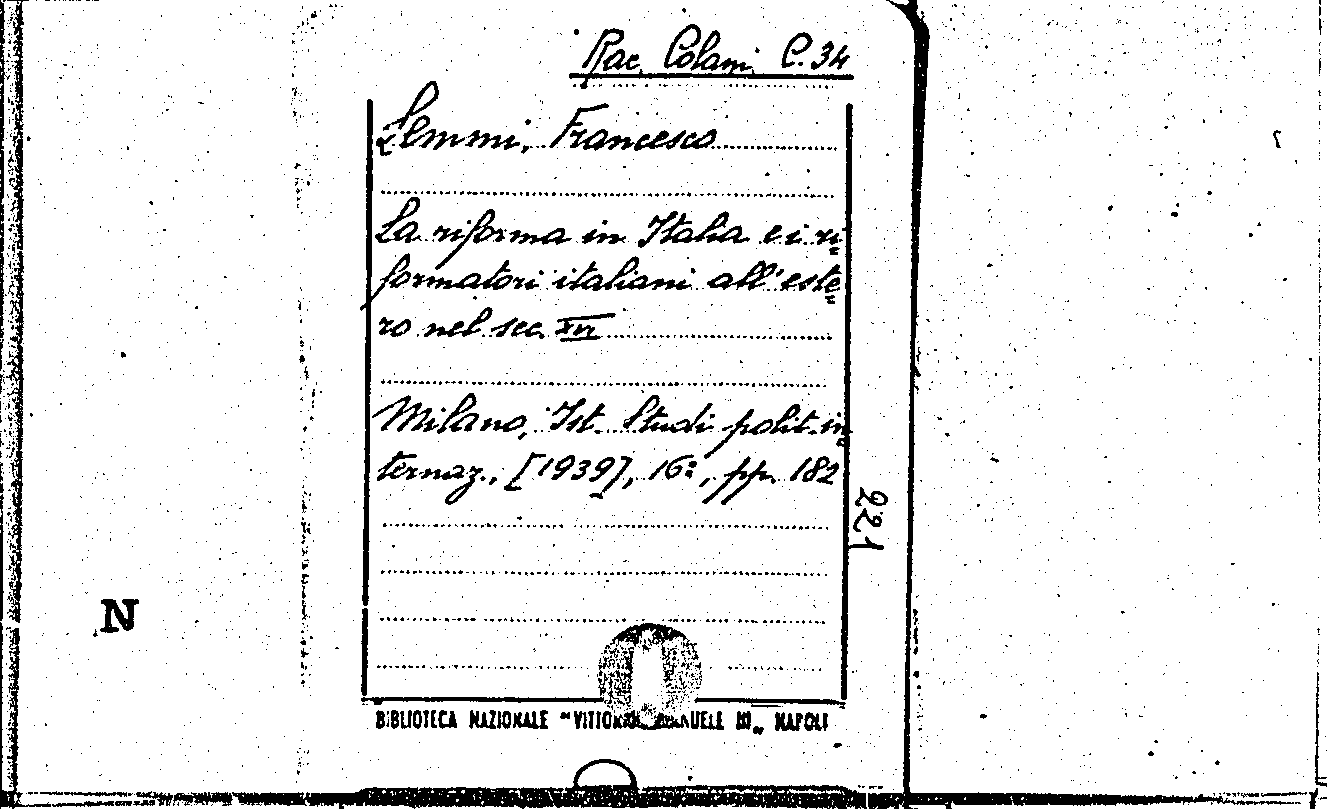 Rac. Colami C. 34
Lemmi, Francesco
La riforma in Italia e i ri„
formatori italiani all'este„
ro nel sec. XVI
Milano, Ist. Studi polit. in„
ternaz., [1939], 16°, pp. 182
221
N
BIBLIOTECA NAZIONALE "VITTORIO EMANUELE III„ NAPOLI